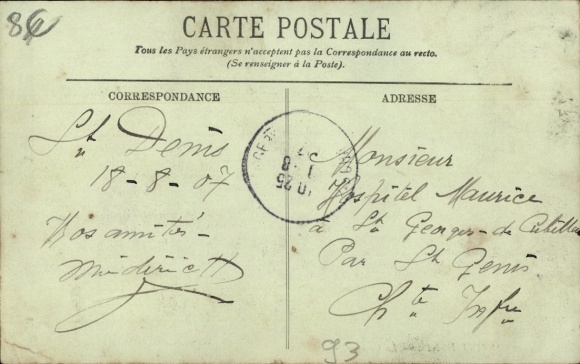 84
CARTE POSTALE
Tous les Pays étrangers n'acceptent pas la Correspondance au recto.
(Se renseigner à la Poste).
CORRESPONDANCE
ADRESSE
St Denis
18-8-07
Nos amitiés
Monsieur
Hospitel Maurice
à St Georges-de
Par St Genis
Chte Infre
10 25
93